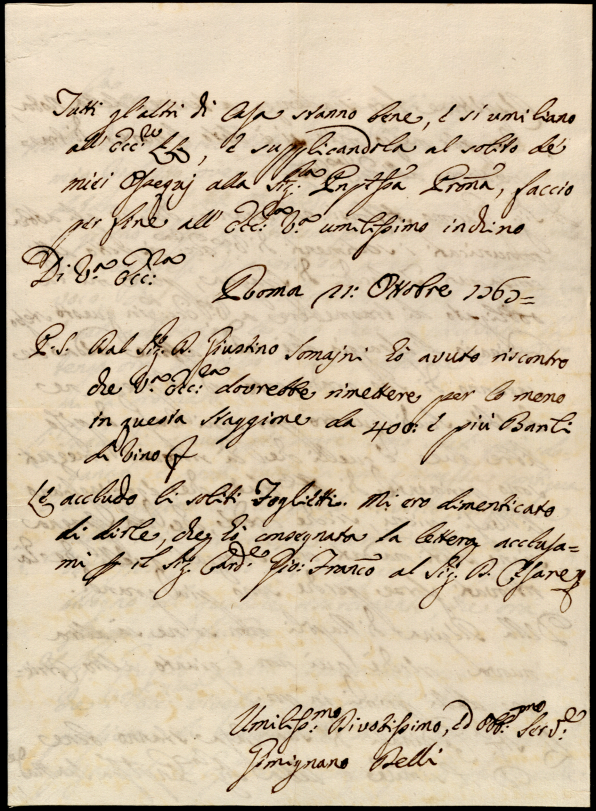 Tutti gl'altri di Casa stanno bene, è si umiliano
all' Ecc:ze LL, è supplicandola al solito de
miei Ossequj alla Sig:ra Pnpessa Prona, faccio
per fine all' Ecc:za V:ra umilissimo inchino
Di V:ra Ecc:za
Roma 21: Ottobre 1767=
P.S. Dal Sig: D. Giustino Somajni hò avuto riscontro
che V:ra Ecc:za dovrebbe rimettere per lo meno
in questa staggione da 400: è più Barili
di vino
Le accludo li soliti Foglietti. Mi ero dimenticato
di dirle, che hò consegnata la lettera acclusa=
mi il Sig: Card:e Gio: Franco al Sig: D. Cesare
Umiliss:mo Divotissimo, ed Obb:mo Serv:e
Gimignano Belli